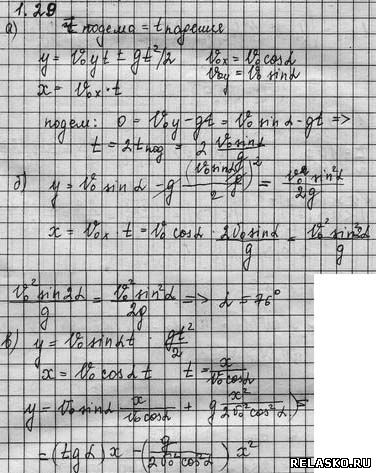 1.29
а) t подема = t падения
y = v₀yt ± gt²/2    v₀x = v₀cosα
x = v₀x · t    v₀y = v₀ sinα
подем: 0 = v₀y - gt = v₀ sinα - gt =>
t = 2tпод = 2 v₀sinα/g
б) y = v₀ sinα - g (v₀sinα/g)²/2 = v₀² sin²α/2g
x = v₀x · t = v₀ cosα · 2v₀sinα/g = v₀² sin2α/g
v₀² sin2α/g = v₀² sin²α/2g => α = 76°
в) y = v₀ sinαt · gt²/2
x = v₀ cosα t    t = x/v₀cosα
y = v₀ sinα x/v₀cosα + g x²/2v₀²cos²α =
= (tgα)x - (g/2v₀² cos²α) x²
RELASKO.RU